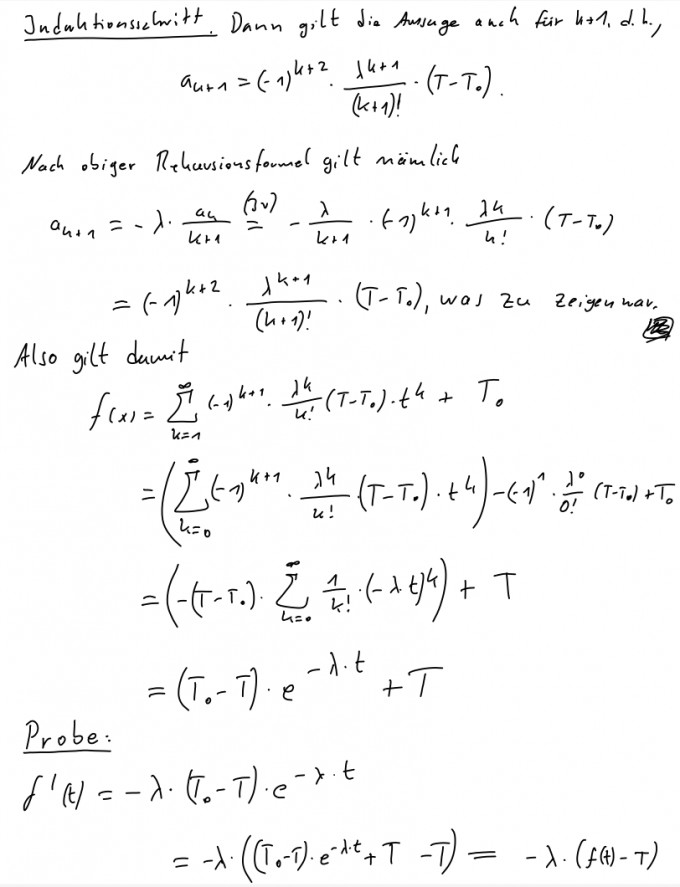 Induktionsschritt. Dann gilt die Aussage auch für k+1, d.h.,
a_{k+1} = (-1)^{k+2} · \frac{λ^{k+1}}{(k+1)!} · (T-T_0).
Nach obiger Rekursionsformel gilt nämlich
a_{k+1} = -λ · \frac{a_k}{k+1} \overset{(IV)}{=} -\frac{λ}{k+1} · (-1)^{k+1} · \frac{λ^k}{k!} · (T-T_0)
= (-1)^{k+2} · \frac{λ^{k+1}}{(k+1)!} · (T-T_0), was zu zeigen war.
Also gilt damit
f(x) = \sum_{k=1}^{∞} (-1)^{k+1} · \frac{λ^k}{k!} (T-T_0) · t^k + T_0
= (\sum_{k=0}^{∞} (-1)^{k+1} · \frac{λ^k}{k!} · (T-T_0) · t^k) - (-1)^1 · \frac{λ^0}{0!} (T-T_0) + T_0
= (-(T-T_0) · \sum_{k=0}^{∞} \frac{1}{k!} · (-λt)^k) + T
= (T_0-T) · e^{-λ·t} + T
Probe:
f'(t) = -λ · (T_0-T) · e^{-λ·t}
= -λ · ((T_0-T) · e^{-λ·t} + T - T) = -λ · (f(t) - T)